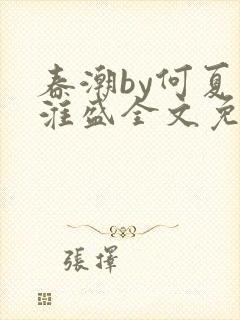 春潮by何夏
淮盛全文免
張擇